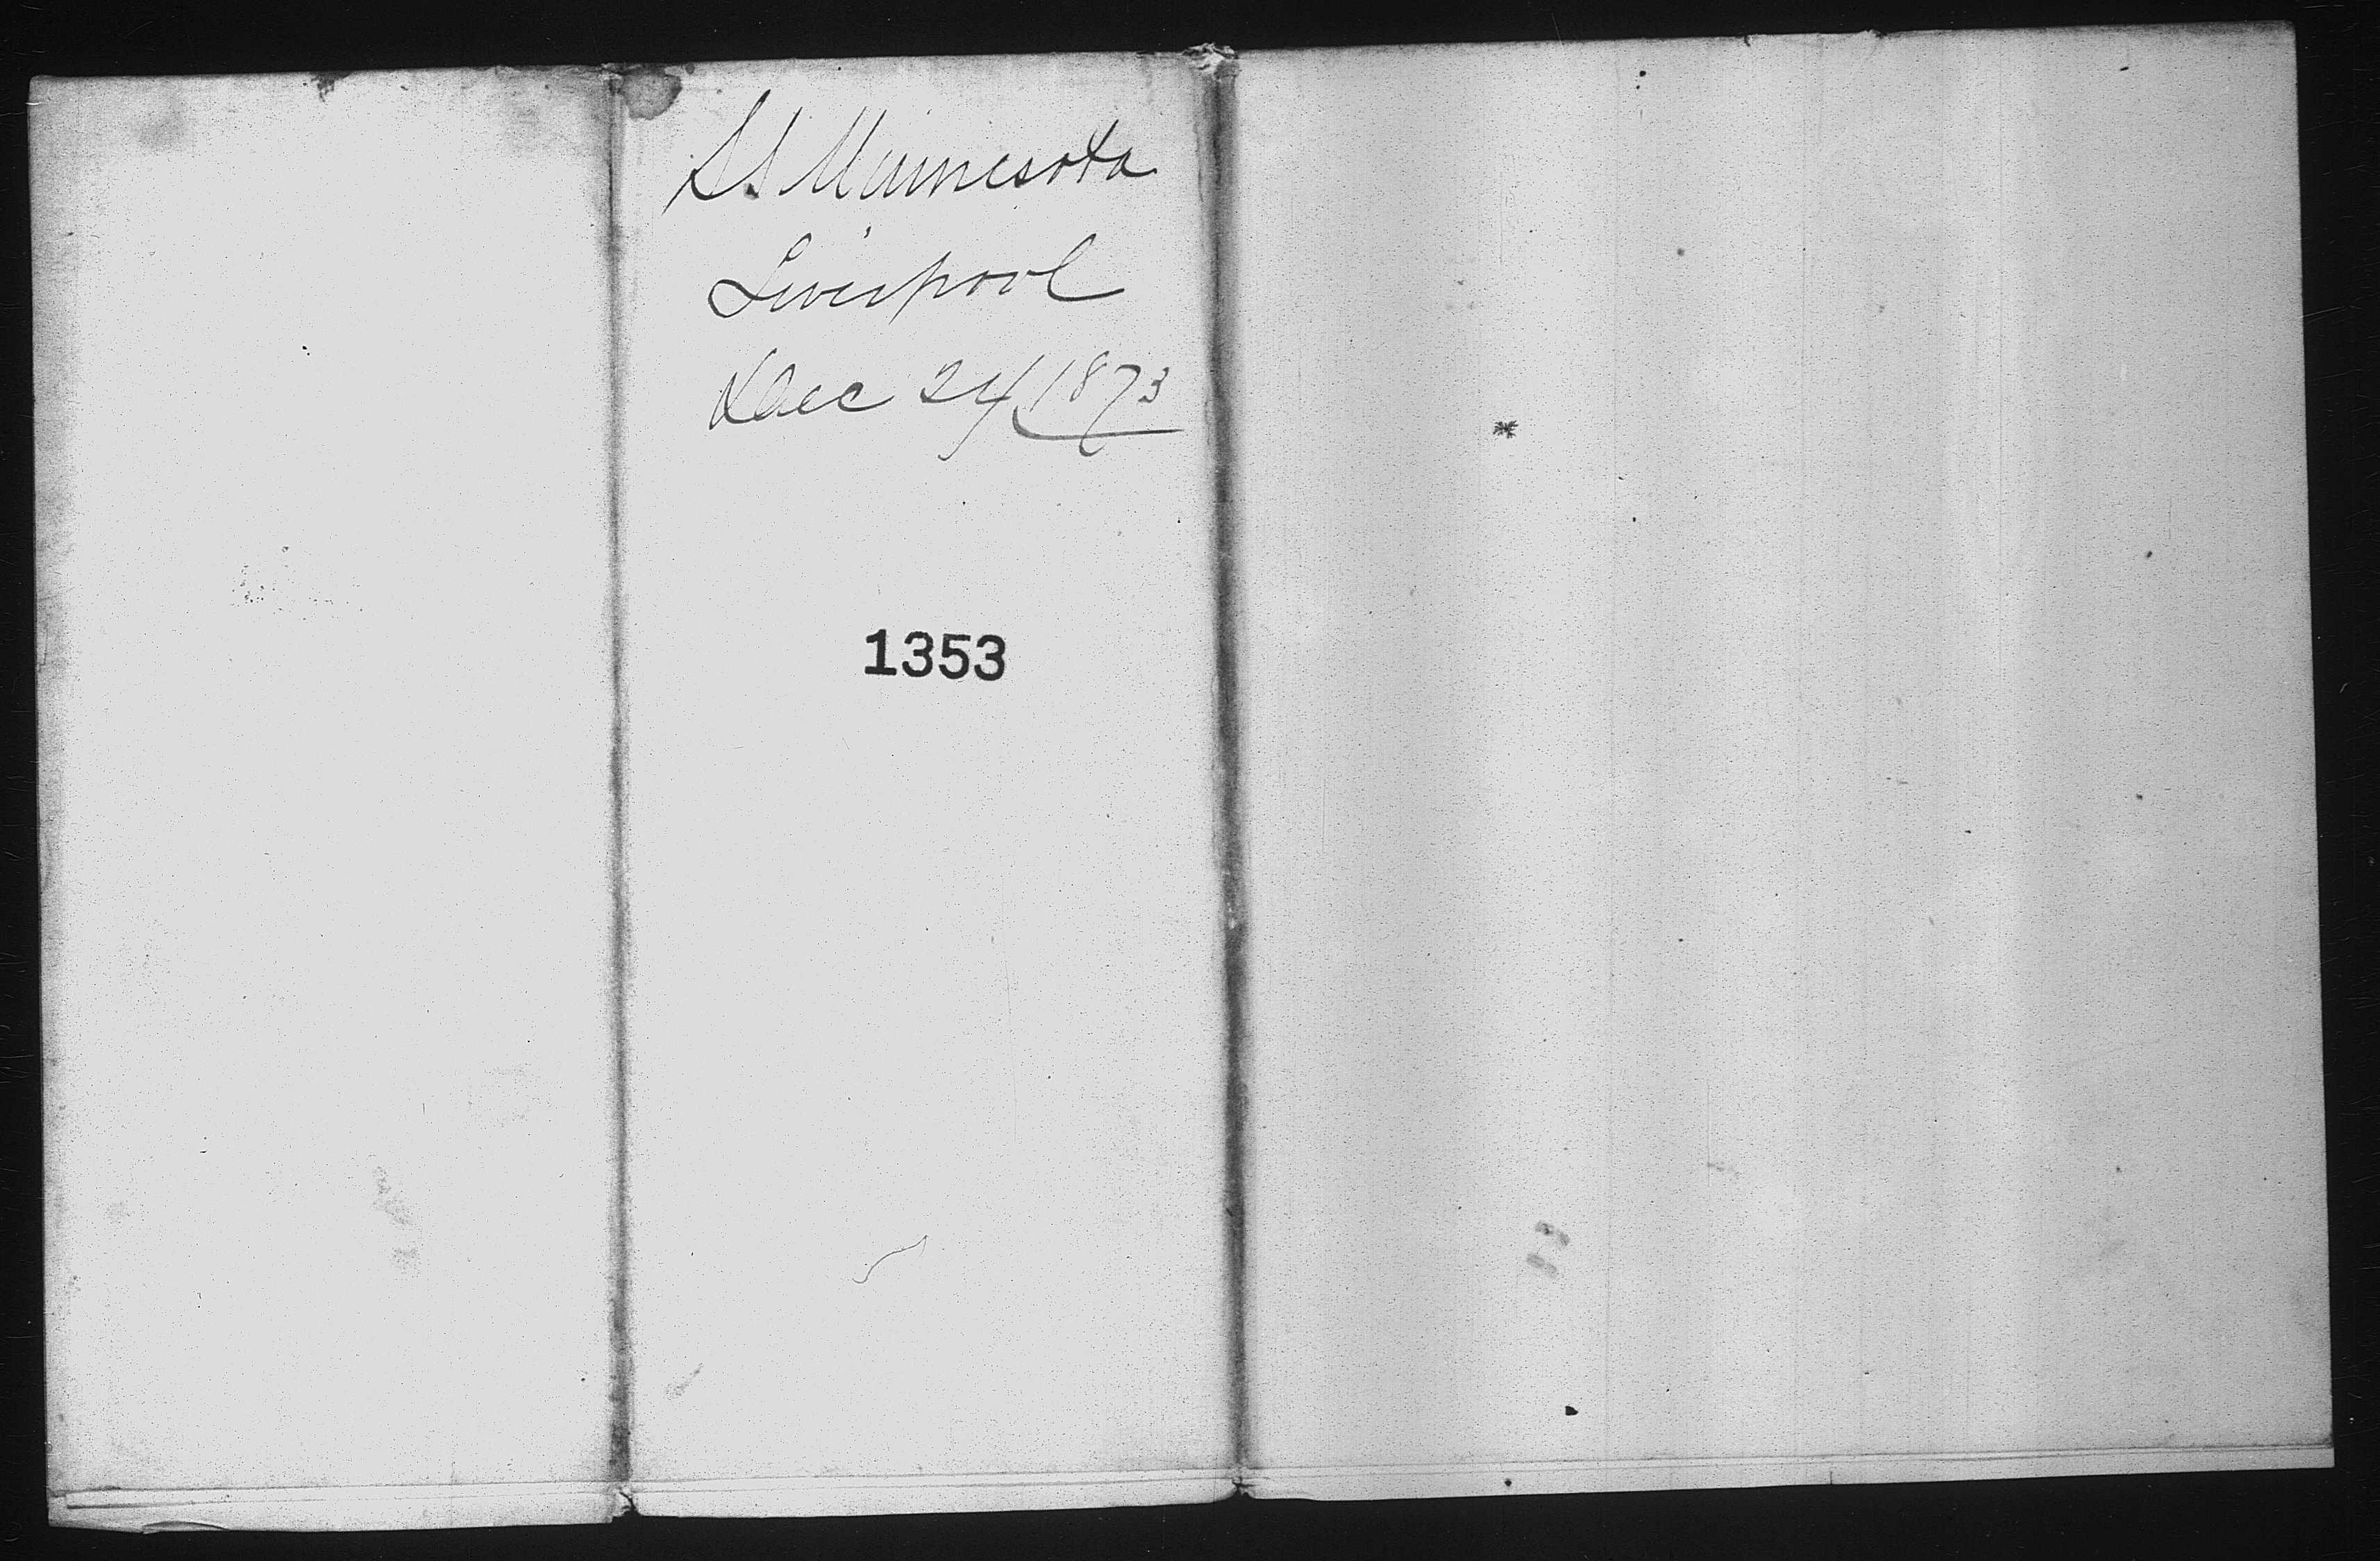 SS Minnesota
Liverpool
Dec 24 1873
1353